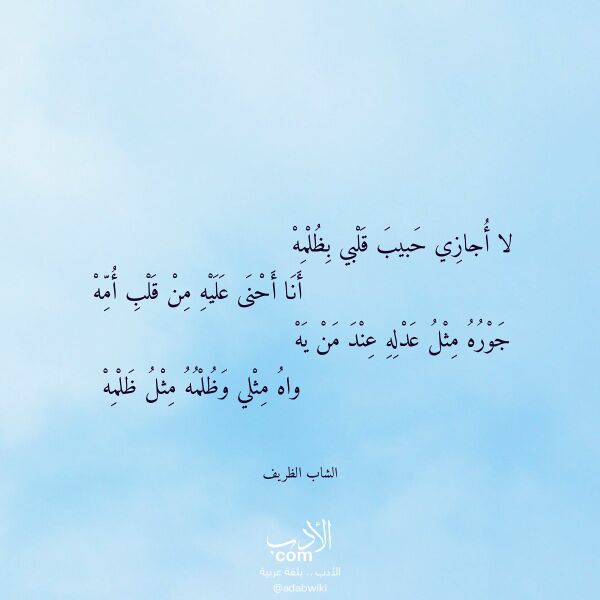 لا أُجازِي حَبيبَ قَلْبي بِظُلْمِهْ
أَنَا أَحْنَى عَلَيْهِ مِنْ قَلْبِ أُمِّهْ
جَوْرُهُ مِثْلُ عَدْلِهِ عِنْدَ مَنْ يَهْ
واهُ مِثْلي وَظُلْمُهُ مِثْلُ ظَلْمِهْ
الشاب الظريف
الأدب
com
الأدب .. بلغة عربية
@adabwiki